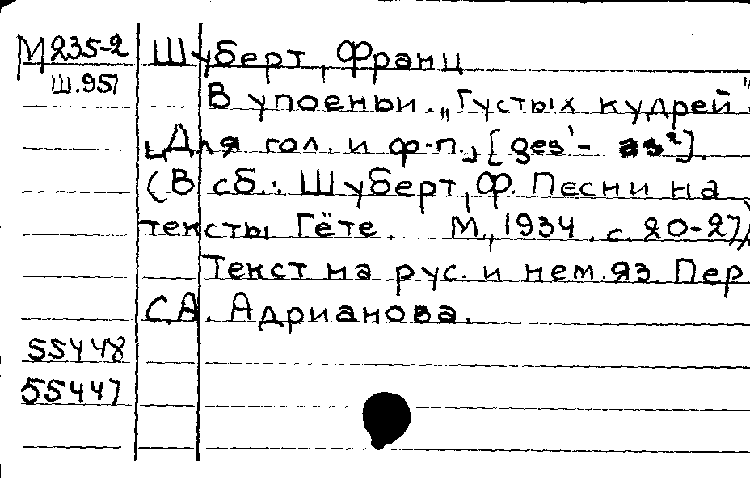 М235-2 Шуберт, Франц
Ш.951
В упоеньи. „Густых кудрей"
„Для гол. и ф-п.„ [des¹ - as²].
(В сб.: Шуберт, Ф. Песни на
тексты Гёте. М., 1934. с. 20-27)
Текст на рус. и нем. яз. Пер
С.А. Адрианова.
55448
55447